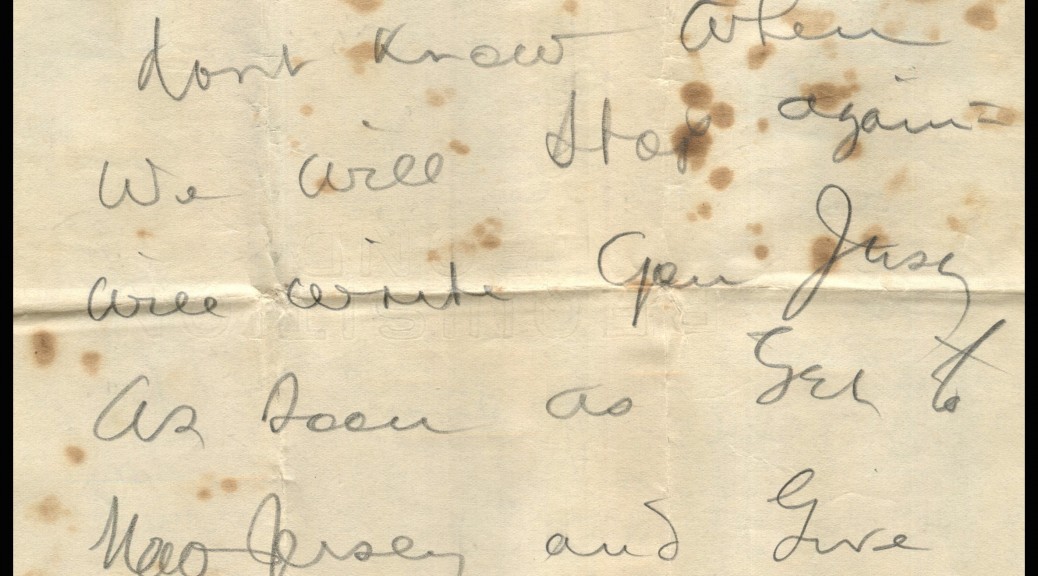 dont Know When
We will Stop again-
will write you Just
As soon as Get to
New Jersey and Give